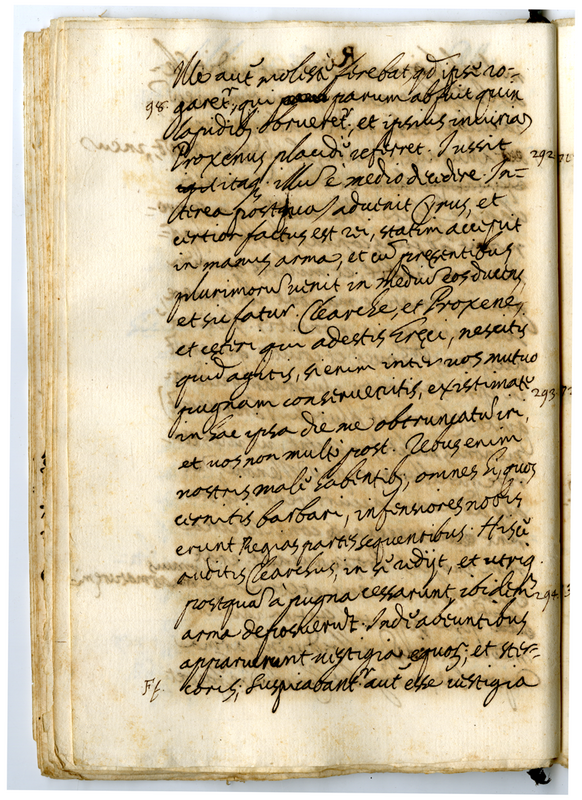 Ille autē molestè ferebat qd ipse ro-
98. garet, qui parum abfuit quin
lapidibꝫ obrueretr, et ipsius iniurias
Proxenus placidè referret. Iussit 292
itaqꝫ illū è medio discedere. In-
terea postquā aduenit Cyrus, et
certior factus est rei, statim accepit
in manus arma, et cū pręsentibus
plurimorū uenit in mediū eos ducens,
et sic fatur. Clearche, et Proxene,
et cęteri qui adestis Gręci, nescitis
quid agitis, si enim inter uos mutuo
pugnam conserueritis, existimate 293
in hac ipsa die me obtruncatū iri,
et uos non multò post. Rebus enim
nostris malè habentibꝫ, omnes hi, quos
cernitis barbari, infensiores nobis
erunt Regias partes sequentibus. His
auditis Clearchus, in se redijt, et utriqꝫ
postquā à pugna cessarunt, ibidem 294
arma deposuerūt. Indè abeuntibus
apparuerunt uestigia equorꝫ, et ster-
Ff. coris; Suspicabantr autē esse uestigia